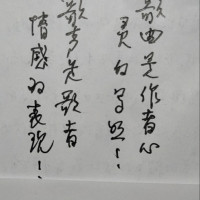 歌曲是作者心
灵的写照！
歌声是歌者
情感的表现！